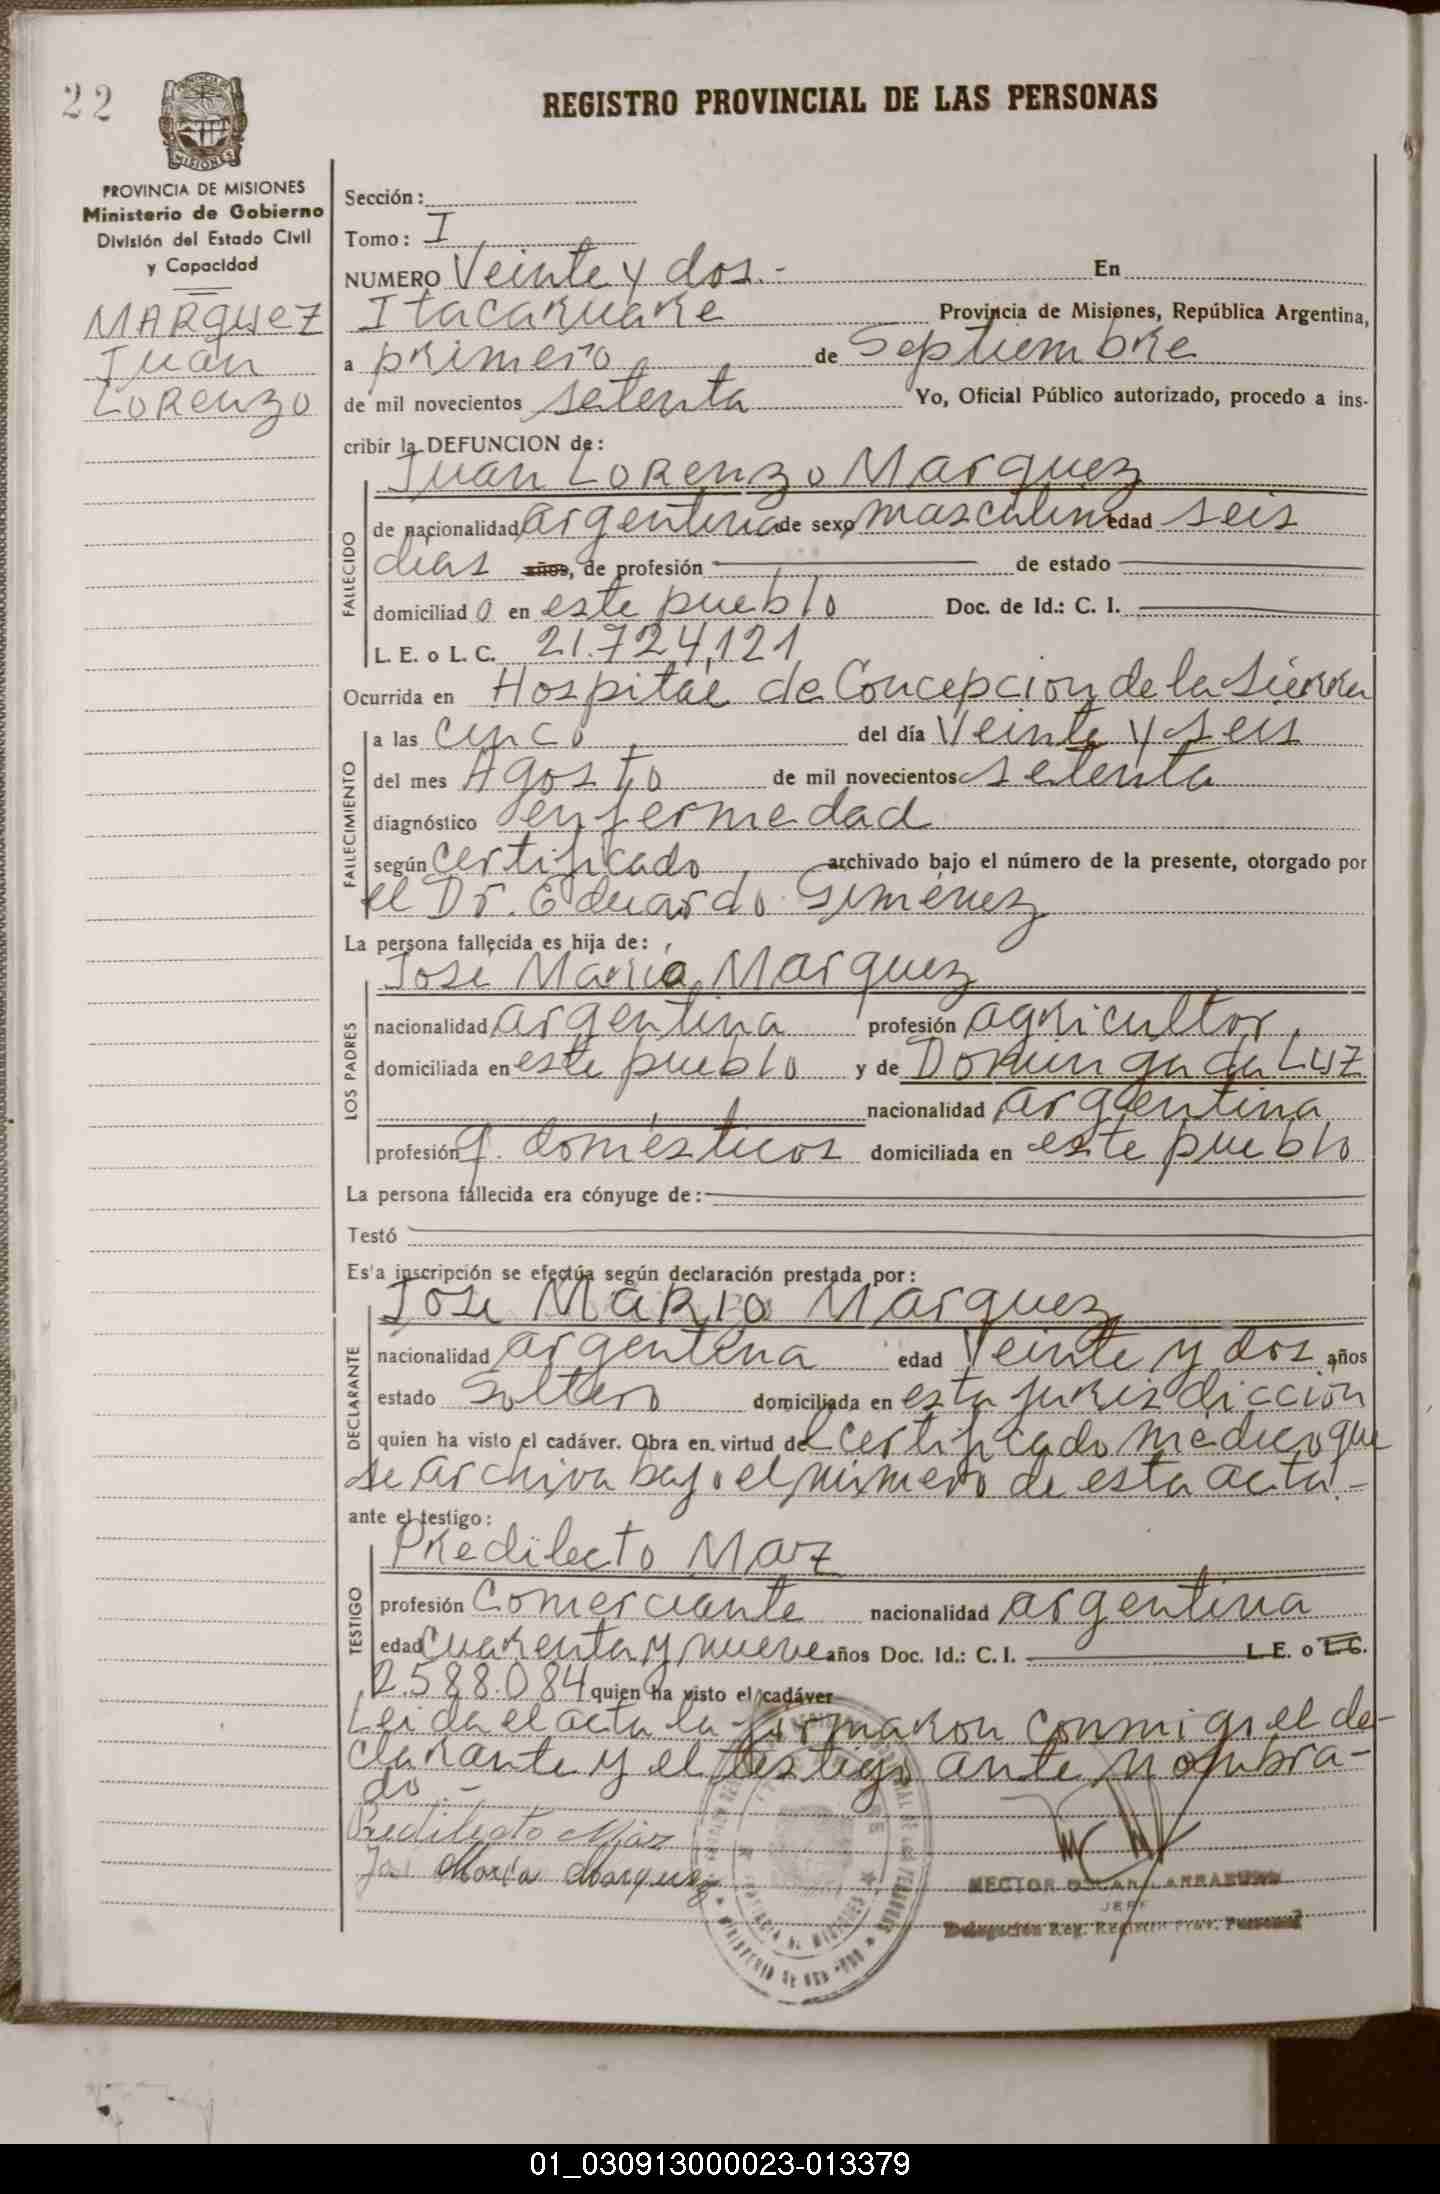 22
REGISTRO PROVINCIAL DE LAS PERSONAS
PROVINCIA DE MISIONES
Ministerio de Gobierno
División del Estado Civil
y Capacidad
MARquez
Juan
Lorenzo
Sección:
Tomo: I
NUMERO Veinte y dos.- En
Itacaruare Provincia de Misiones, República Argentina,
a primero de Septiembre
de mil novecientos setenta Yo, Oficial Público autorizado, procedo a ins-
cribir la DEFUNCION de:
Juan Lorenzo Marquez
FALLECIDO
de nacionalidad argentina de sexo masculino edad seis
días años, de profesión de estado
domiciliado en este pueblo Doc. de Id.: C. I.
L. E. o L. C. 21.724,121
Ocurrida en Hospital de Concepcion de la Sierra
FALLECIMIENTO
a las cinco del día Veinte y seis
del mes Agosto de mil novecientos setenta
diagnóstico enfermedad
según certificado archivado bajo el número de la presente, otorgado por
el Dr. Eduardo Gimenez
La persona fallecida es hija de:
José María Marquez
LOS PADRES
nacionalidad argentina profesión agricultor
domiciliada en este pueblo y de Dominga da Luz
nacionalidad argentina
profesión q. domésticos domiciliada en este pueblo
La persona fallecida era cónyuge de:
Testó
Es'a inscripción se efectúa según declaración prestada por:
José Maria Marquez
DECLARANTE
nacionalidad argentina edad Veinte y dos años
estado soltero domiciliada en esta jurisdicción
quien ha visto el cadáver. Obra en virtud del certificado medico que
se archiva bajo el número de esta acta.-
ante el testigo:
Predilecto Maz
TESTIGO
profesión Comerciante nacionalidad argentina
edad cuarenta y nueve años Doc. Id.: C. I. L. E. o L. C.
2.588.084 quien ha visto el cadáver
Leida el acta la firmaron conmigo el de-
clarante y el testigo ante nombra-
do -
Predilecto Maz
José María Marquez
HECTOR OSCAR
JEFE
Delegación Reg. Prov. Personas
01_030913000023-013379